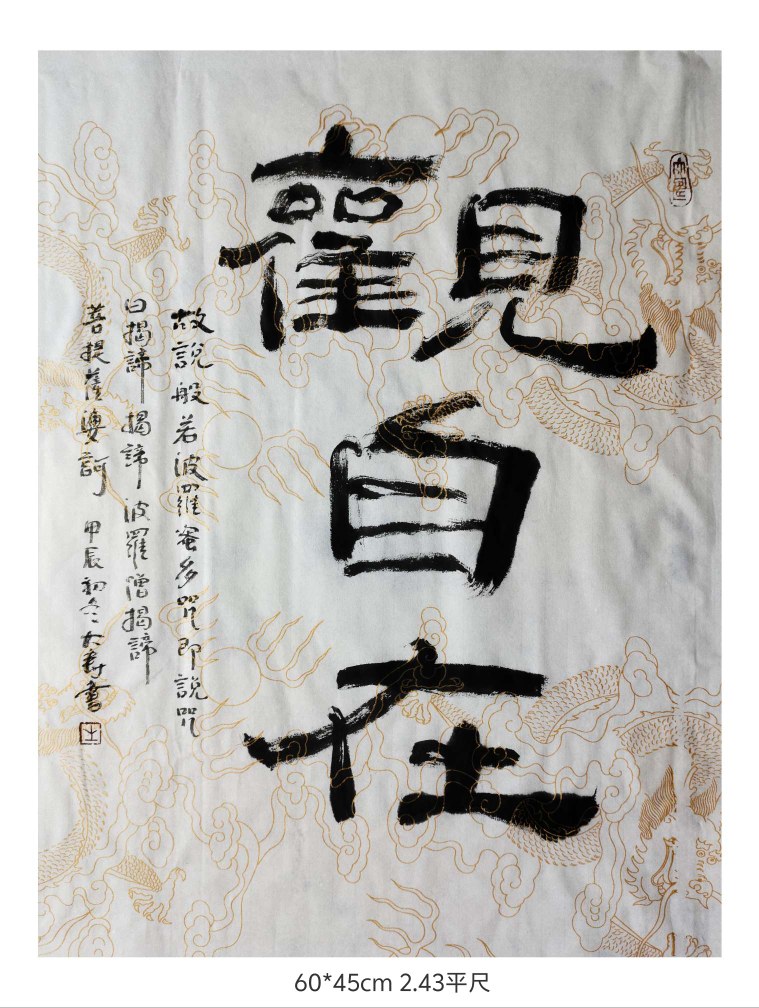 觀
自
在
故說般若波羅蜜多咒即說咒
曰揭諦揭諦波羅僧揭諦
菩提薩婆訶 甲辰初冬大壽書
60*45cm 2.43平尺